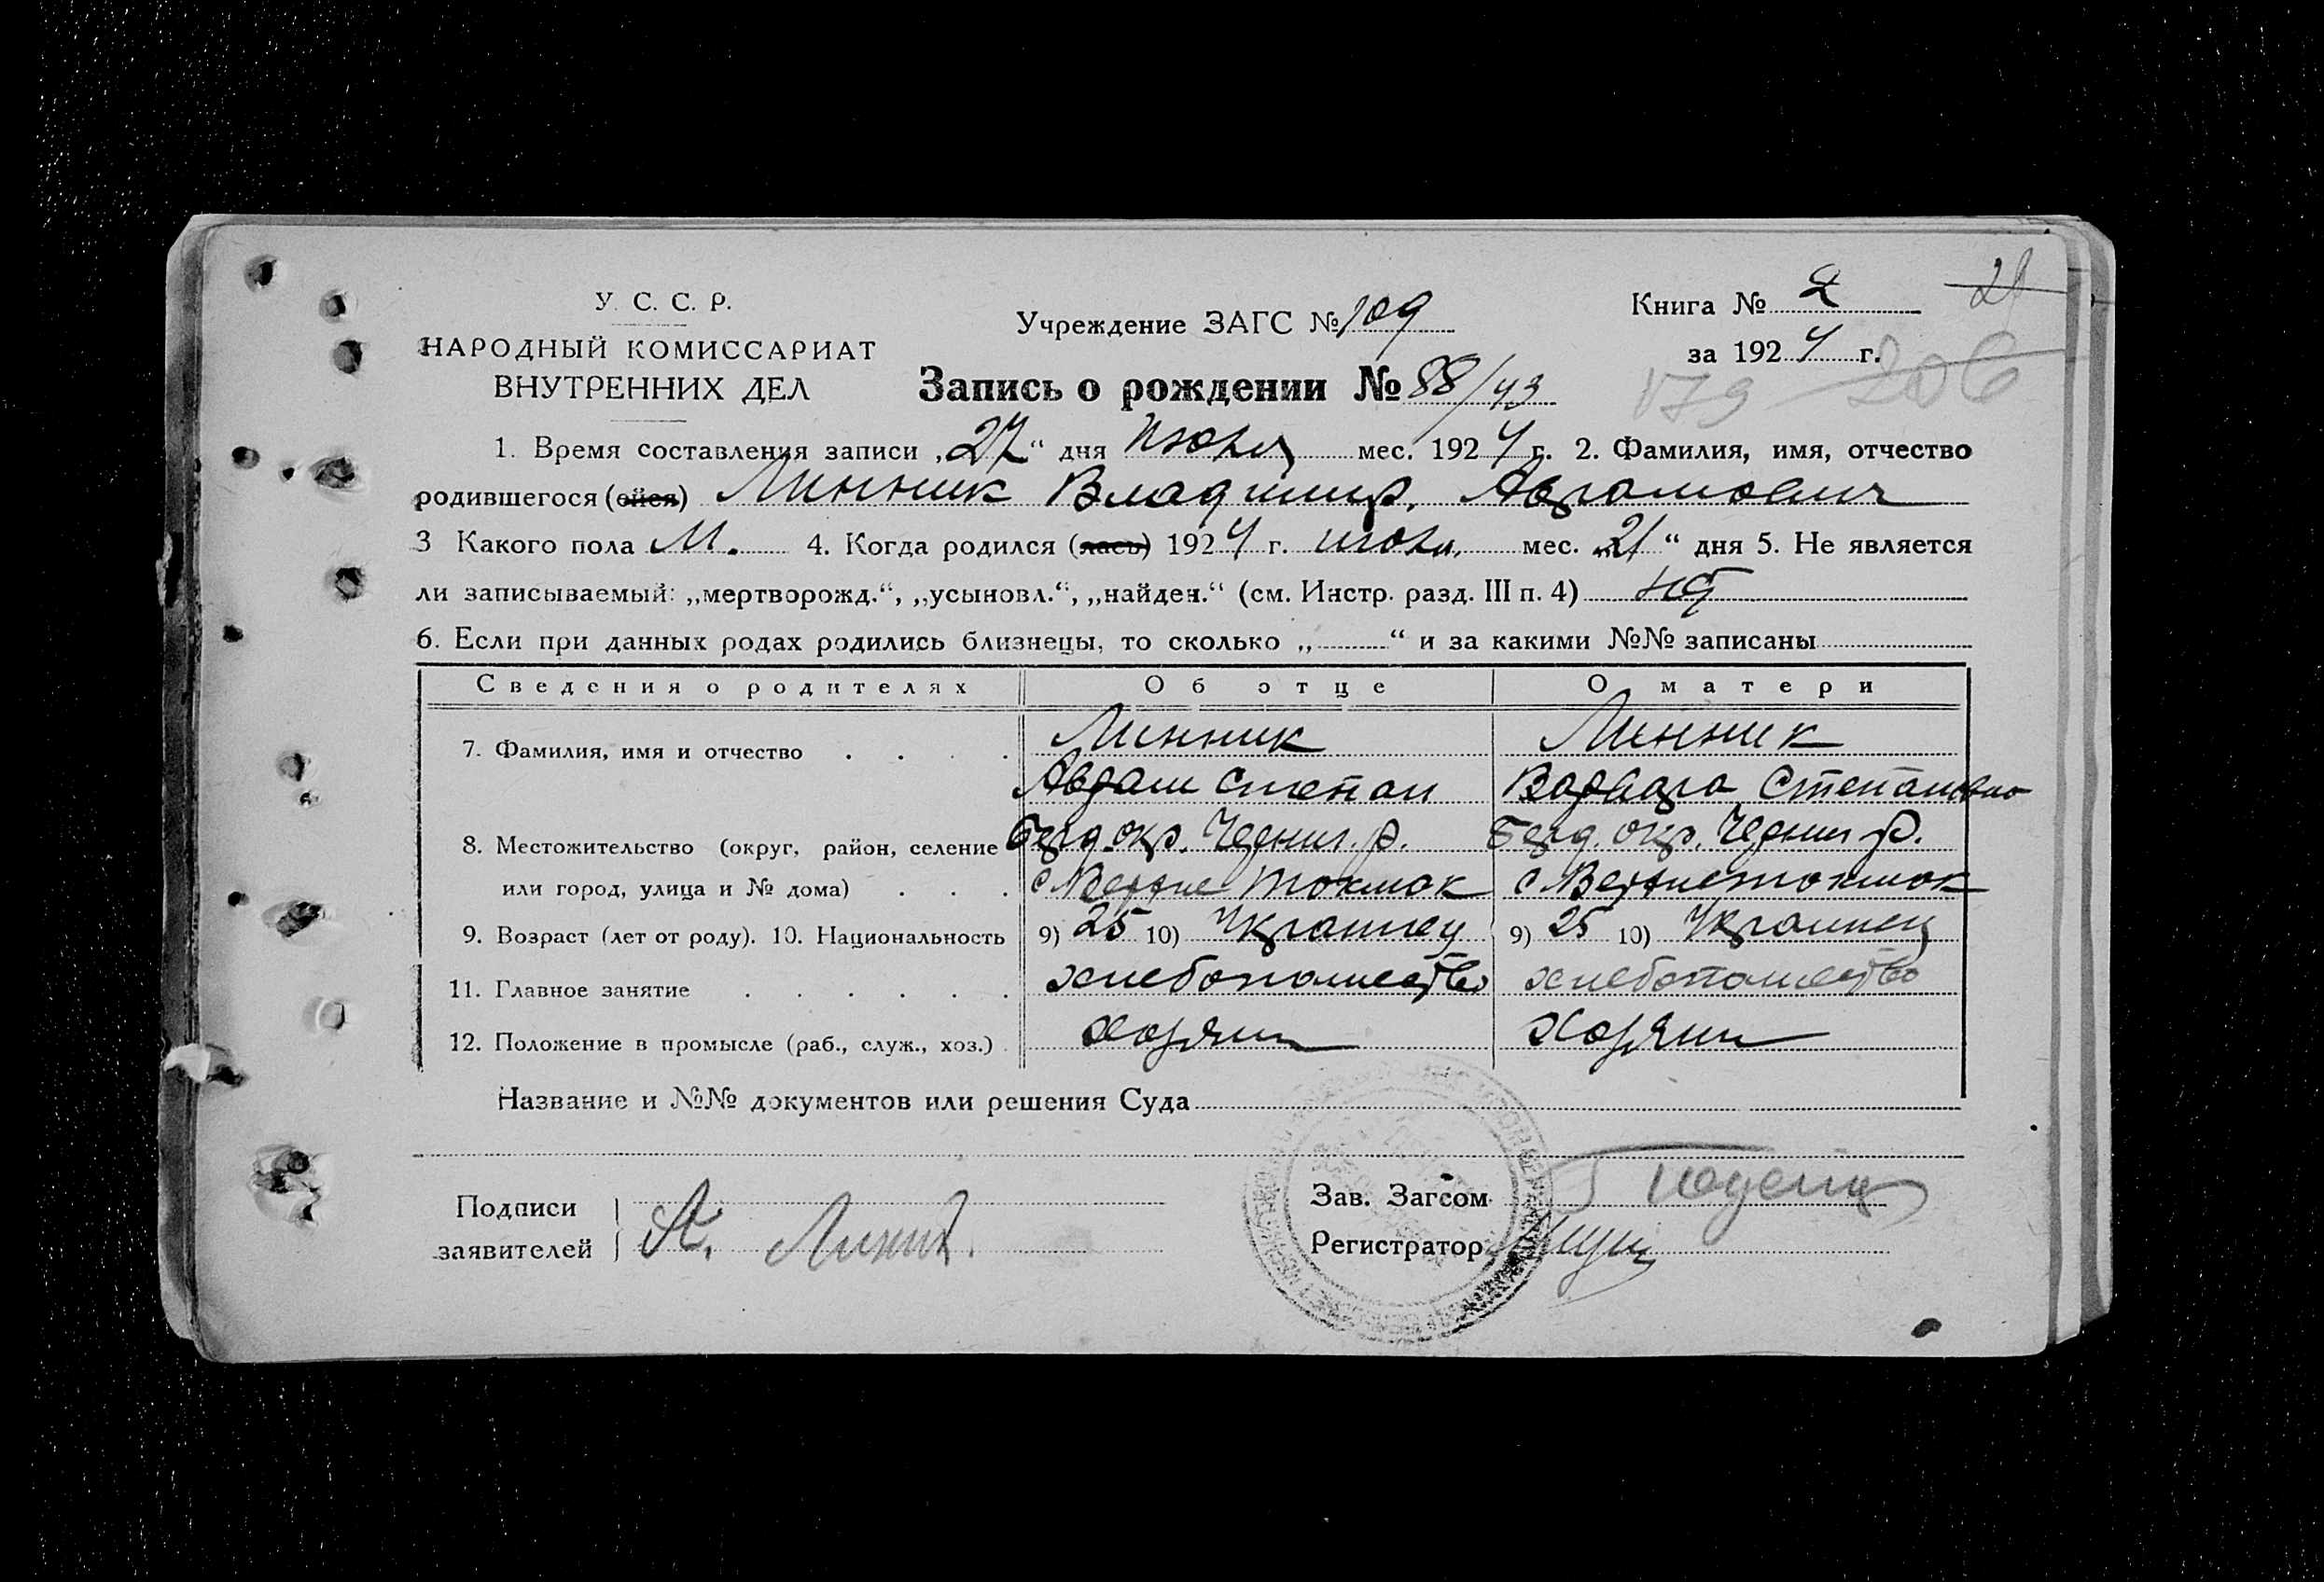 У. С. С. Р.
НАРОДНЫЙ КОМИССАРИАТ
ВНУТРЕННИХ ДЕЛ
Учреждение ЗАГС № 109
Книга № 2
21
за 1924 г.
179 206
Запись о рождении № 88/43
1. Время составления записи „27“ дня июля мес. 1924 г. 2. Фамилия, имя, отчество
родившегося (ейся) Линник Владимир Аврамович
3 Какого пола М. 4. Когда родился (лась) 1924 г. июля мес. „21“ дня 5. Не является
ли записываемый: „мертворожд.“, „усыновл.“, „найден.“ (см. Инстр. разд. III п. 4)
6. Если при данных родах родились близнецы, то сколько „ “ и за какими №№ записаны
Сведения о родителях Об отце О матери
7. Фамилия, имя и отчество . . . . Линник Линник
Аврам Степан Варвара Степановна
8. Местожительство (округ, район, селение Берд. окр. Черниг. р. Берд. окр. Черниг р.
или город, улица и № дома) . . . с Верхне Токмак с Верхнетокмак
9. Возраст (лет от роду). 10. Национальность 9) 25 10) Украинец 9) 25 10) Украинец
11. Главное занятие . . . . . . хлебопашество хлебопашество
12. Положение в промысле (раб., служ., хоз.) . хозяин хозяин
Название и №№ документов или решения Суда
Подписи
заявителей
А. Линник
Зав. Загсом
Регистратор